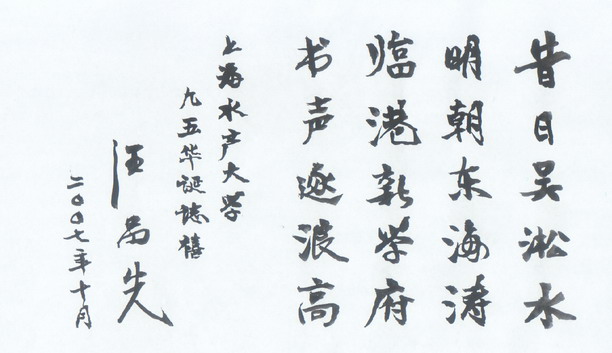 昔日吴淞水
明朝东海涛
临港新学府
书声逐浪高
上海水产大学
九五华诞志禧
汪
先
二〇〇七年十月